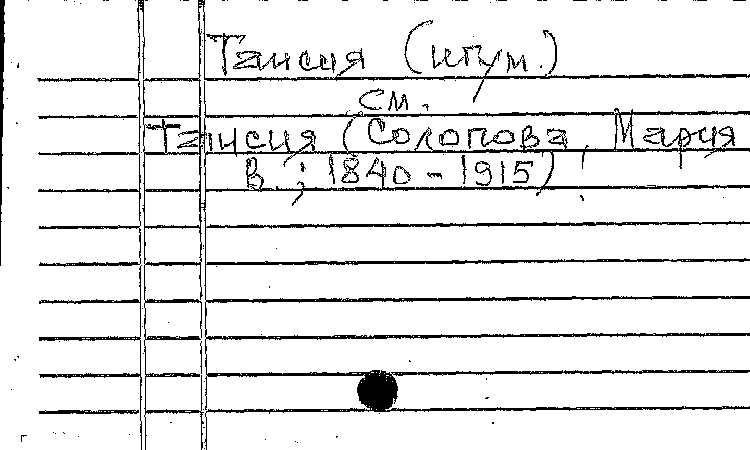 Таисия (игум.)
см.
Таисия (Солопова, Мария
В.; 1840-1915)